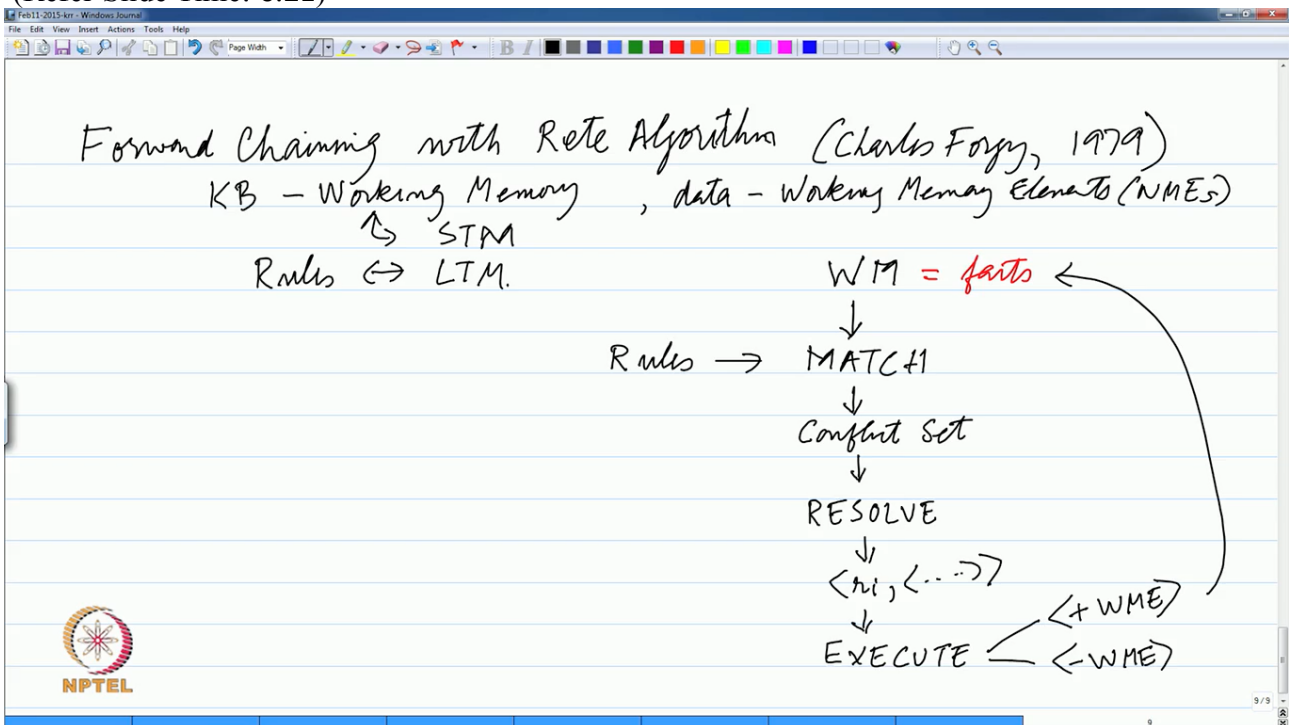 (Refer Slide Time: 6:22)
Feb11-2015-krr - Windows Journal
File Edit View Insert Actions Tools Help
Page Width
Forward Chaining with Rete Algorithm (Charles Forgy, 1979)
KB - Working Memory , data - Working Memory Elements (WMEs)
STM
Rules ↔ LTM.
WM = facts
Rules → MATCH
Conflict Set
RESOLVE
<ri, <....>>
EXECUTE
<+ WME>
<- WME>
NPTEL
9/9
9